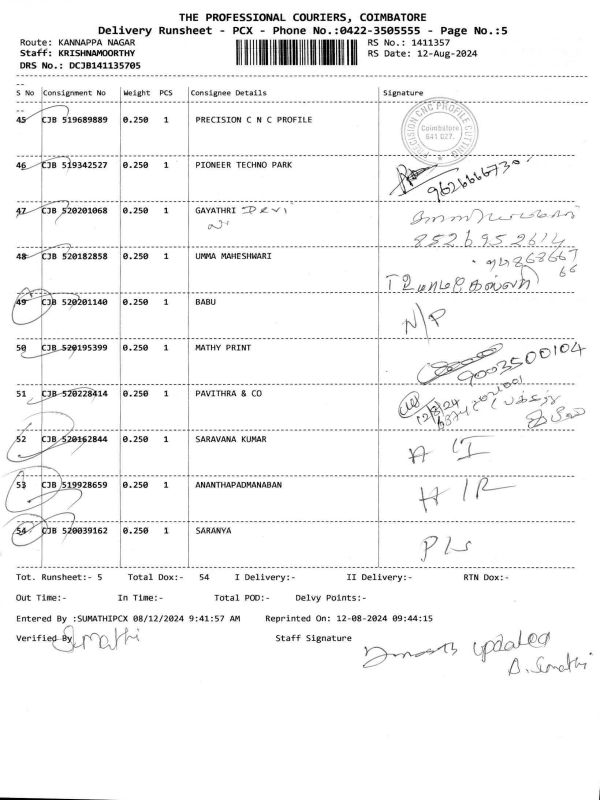 THE PROFESSIONAL COURIERS, COIMBATORE
Delivery Runsheet - PCX - Phone No.:0422-3505555 - Page No.:5
Route: KANNAPPA NAGAR RS No.: 1411357
Staff: KRISHNAMOORTHY RS Date: 12-Aug-2024
DRS No.: DCJB141135705
S No Consignment No Weight PCS Consignee Details Signature
45 CJB 519689889 0.250 1 PRECISION C N C PROFILE
PRECISION CNC PROFILE CUTTING
Coimbatore
641 027.
46 CJB 519342527 0.250 1 PIONEER TECHNO PARK
9626666730
47 CJB 520201068 0.250 1 GAYATHRI DEVI
8526952614
48 CJB 520182858 0.250 1 UMMA MAHESHWARI
49 CJB 520201140 0.250 1 BABU N/P
50 CJB 520195399 0.250 1 MATHY PRINT
9003500104
51 CJB 520228414 0.250 1 PAVITHRA & CO
12/8/24
52 CJB 520162844 0.250 1 SARAVANA KUMAR
53 CJB 519928659 0.250 1 ANANTHAPADMANABAN
54 CJB 520039162 0.250 1 SARANYA
Tot. Runsheet:- 5 Total Dox:- 54 I Delivery:- II Delivery:- RTN Dox:-
Out Time:- In Time:- Total POD:- Delvy Points:-
Entered By :SUMATHIPCX 08/12/2024 9:41:57 AM Reprinted On: 12-08-2024 09:44:15
Verified By Sumathi Staff Signature
updated
B. Sumathi